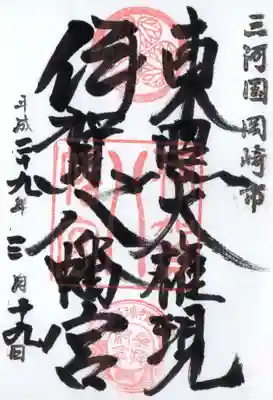 三河国 岡崎市
東照大権現
伊賀八幡宮
平成二十九年 三月 十九日